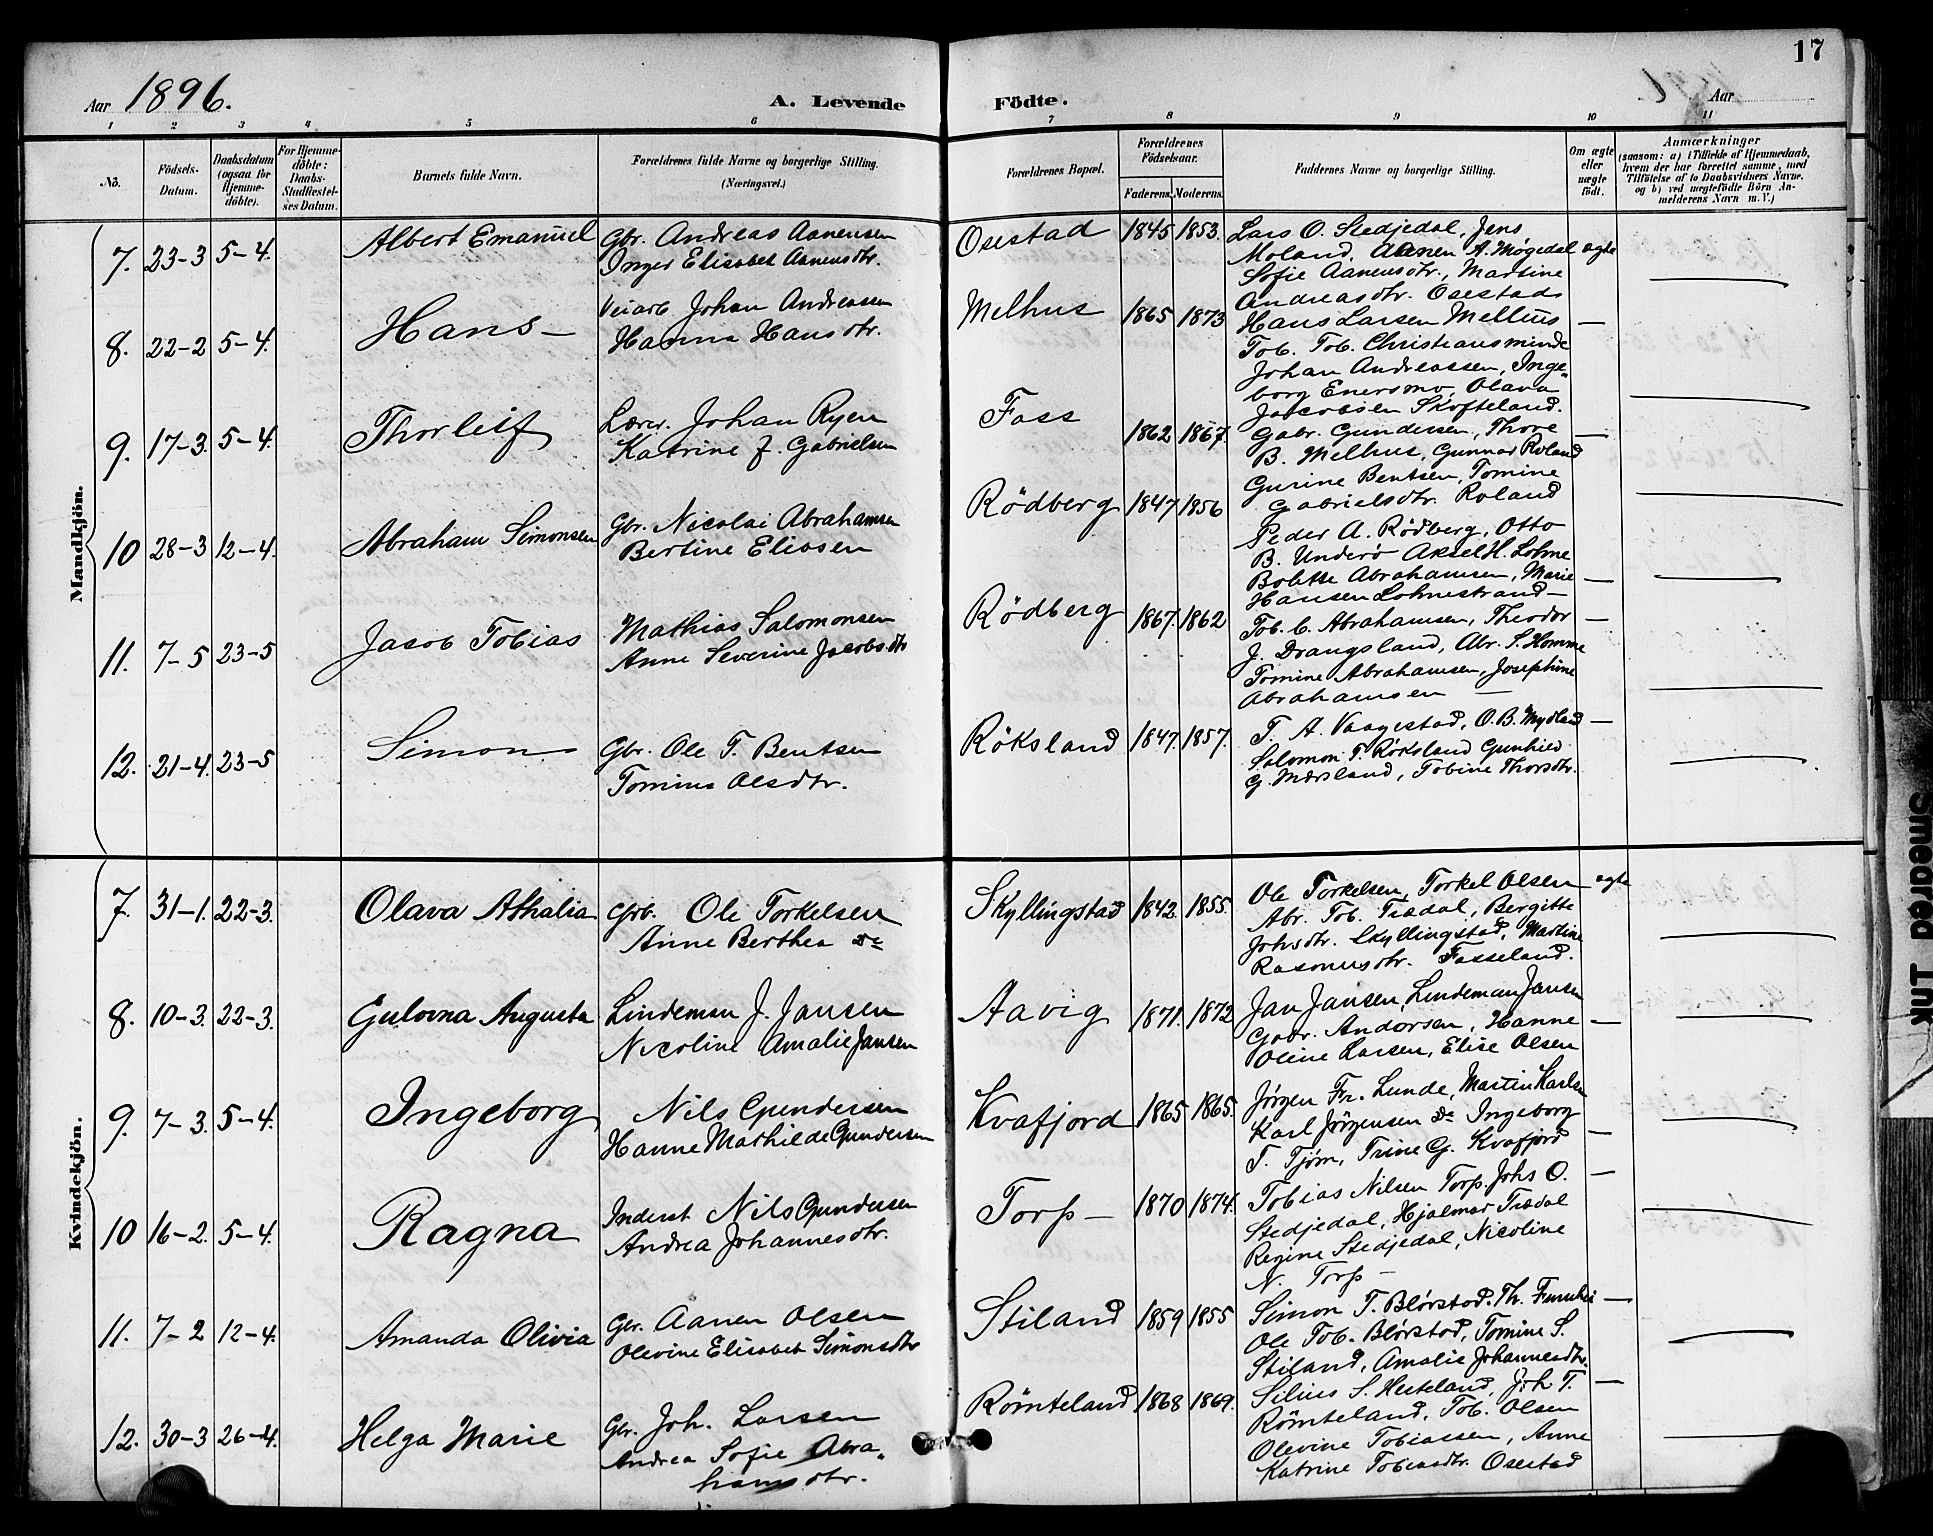 17
Aar 1896.
A. Levende Födte.
Aar
1 2 3 4 5 6 7 8 9 10 11
No.
Födsels-Datum.
Daabsdatum (ogsaa for Hjemme-döbte).
For Hjemme-döbte: Daabs-Stadfæstel-ses Datum.
Barnets fulde Navn.
Forældrenes fulde Navne og borgerlige Stilling. (Næringsvei.)
Forældrenes Bopæl.
Forældrenes Födselsaar.
Faderens. Moderens.
Faddernes Navne og borgerlige Stilling.
Om ægte eller uægte födt.
Anmærkninger
(saasom: a) i Tilfælde af Hjemmedaab, hvem der har forrettet samme, med Tilföielse af to Daabsvidners Navne. og b) ved uægtefödte Börn An-melderens Navn m. V.)
Mandkjön.
7. 23-3 5-4. Albert Emanuel Gbr. Andreas Aanensen Osestad 1845 1853. Lars O. Stedjedal, Jens
Inger Elisabet Aanensdtr. Moland, Aanen A. Møgedal ægte
Sofie Aanensdtr., Martine
Andreasdtr. Osestad
8. 22-2 5-4. Hans Veiarb Johan Andreassen Melhus 1865 1873 Hans Larsen Melhus
Hanna Hansdtr. Tob. Tob. Christiansminde
Johan Andreassen, Inge-
borg Enersmo, Olava
Jacobsen Skofteland.
9. 17-3. 5-4. Thorleif Lærer. Johan Ryen Foss 1862 1867. Gabr. Gundersen, Thore
Katrine J. Gabrielsen B. Melhus, Gunnar Roland
Gurine Bentsen, Tomine
Gabrielsdtr. Roland
10 28-3 12-4. Abraham Simonsen Gbr. Nicolai Abrahamsen Rödberg 1847 1856 Peder A. Rødberg, Otto
Bertine Eliassen B. Underø Aksel H. Lohne
Bolette Abrahamsen, Marie
Hansen Lohnestrand
11. 7-5 23-5 Jacob Tobias Mathias Salomonsen Rödberg 1867. 1862 Tob. C. Abrahamsen, Theodor
Anne Severine Jacobsdtr J. Drangsland, Abr. S. Homme
Tomine Abrahamsen, Josephine
Abrahamsen
12. 21-4. 23-5 Simon Gbr. Ole T. Bentsen Röksland 1847. 1857. T. A. Vaagestad, O. B. Mydland
Tomine Olsdtr. Salomon T. Røksland Gunhild
G. Mærsland, Tobine Thorsdtr.
Kvindekjön.
7. 31-1. 22-3. Olava Athalia Gbr. Ole Torkelsen Skyllingstad 1842. 1855. Ole Torkelsen, Torkel Olsen ægte
Anne Berthea do Abr. Tob. Trædal, Bergitte
Johsdtr. Skyllingstad, Martine
Rasmusdtr. Fasseland.
8. 10-3. 22-3. Gulovna Augusta Lindeman J. Jansen Aavig 1871. 1872 Jan Jansen, Lindeman Jansen
Nicoline Amalie Jansen Gabr. Andorsen, Hanne
Oline Larsen, Elise Olsen
9. 7-3. 5-4. Ingeborg Nils Gundersen Kvafjord 1865 1865. Jørgen Fr. Lunde, Martin Karlsen
Hanne Mathilde Gundersen Karl Jörgensen do Ingeborg
T. Tjöm, Trine G. Kvafjord
10 16-2. 5-4. Ragna Inderst Nils Gundersen Torp 1870 1874. Tobias Nilsen Torp. Johs O.
Andrea Johannesdtr. Stedjedal, Hjalmar Trædal
Regine Stedjedal, Nicoline
N. Torp
11. 7-2 12-4. Amanda Olivia Gbr. Aanen Olsen Stiland 1859 1855 Simon T. Blørstad. Th.
Olevine Elisabet Simonsdtr Ole Tob. Blørstad, Tomine S.
Stiland, Amalie Johannesdtr.
12. 30-3 26-4. Helga Marie Gbr. Joh. Larsen Römteland 1868 1869. Silius S. Hesteland, Joh T.
Andrea Sofie Abra- Römteland, Tob. Olsen
hamsdtr. Olevine Tobiassen, Anne
Katrine Tobiasdtr. Osestad
Smeared Ink